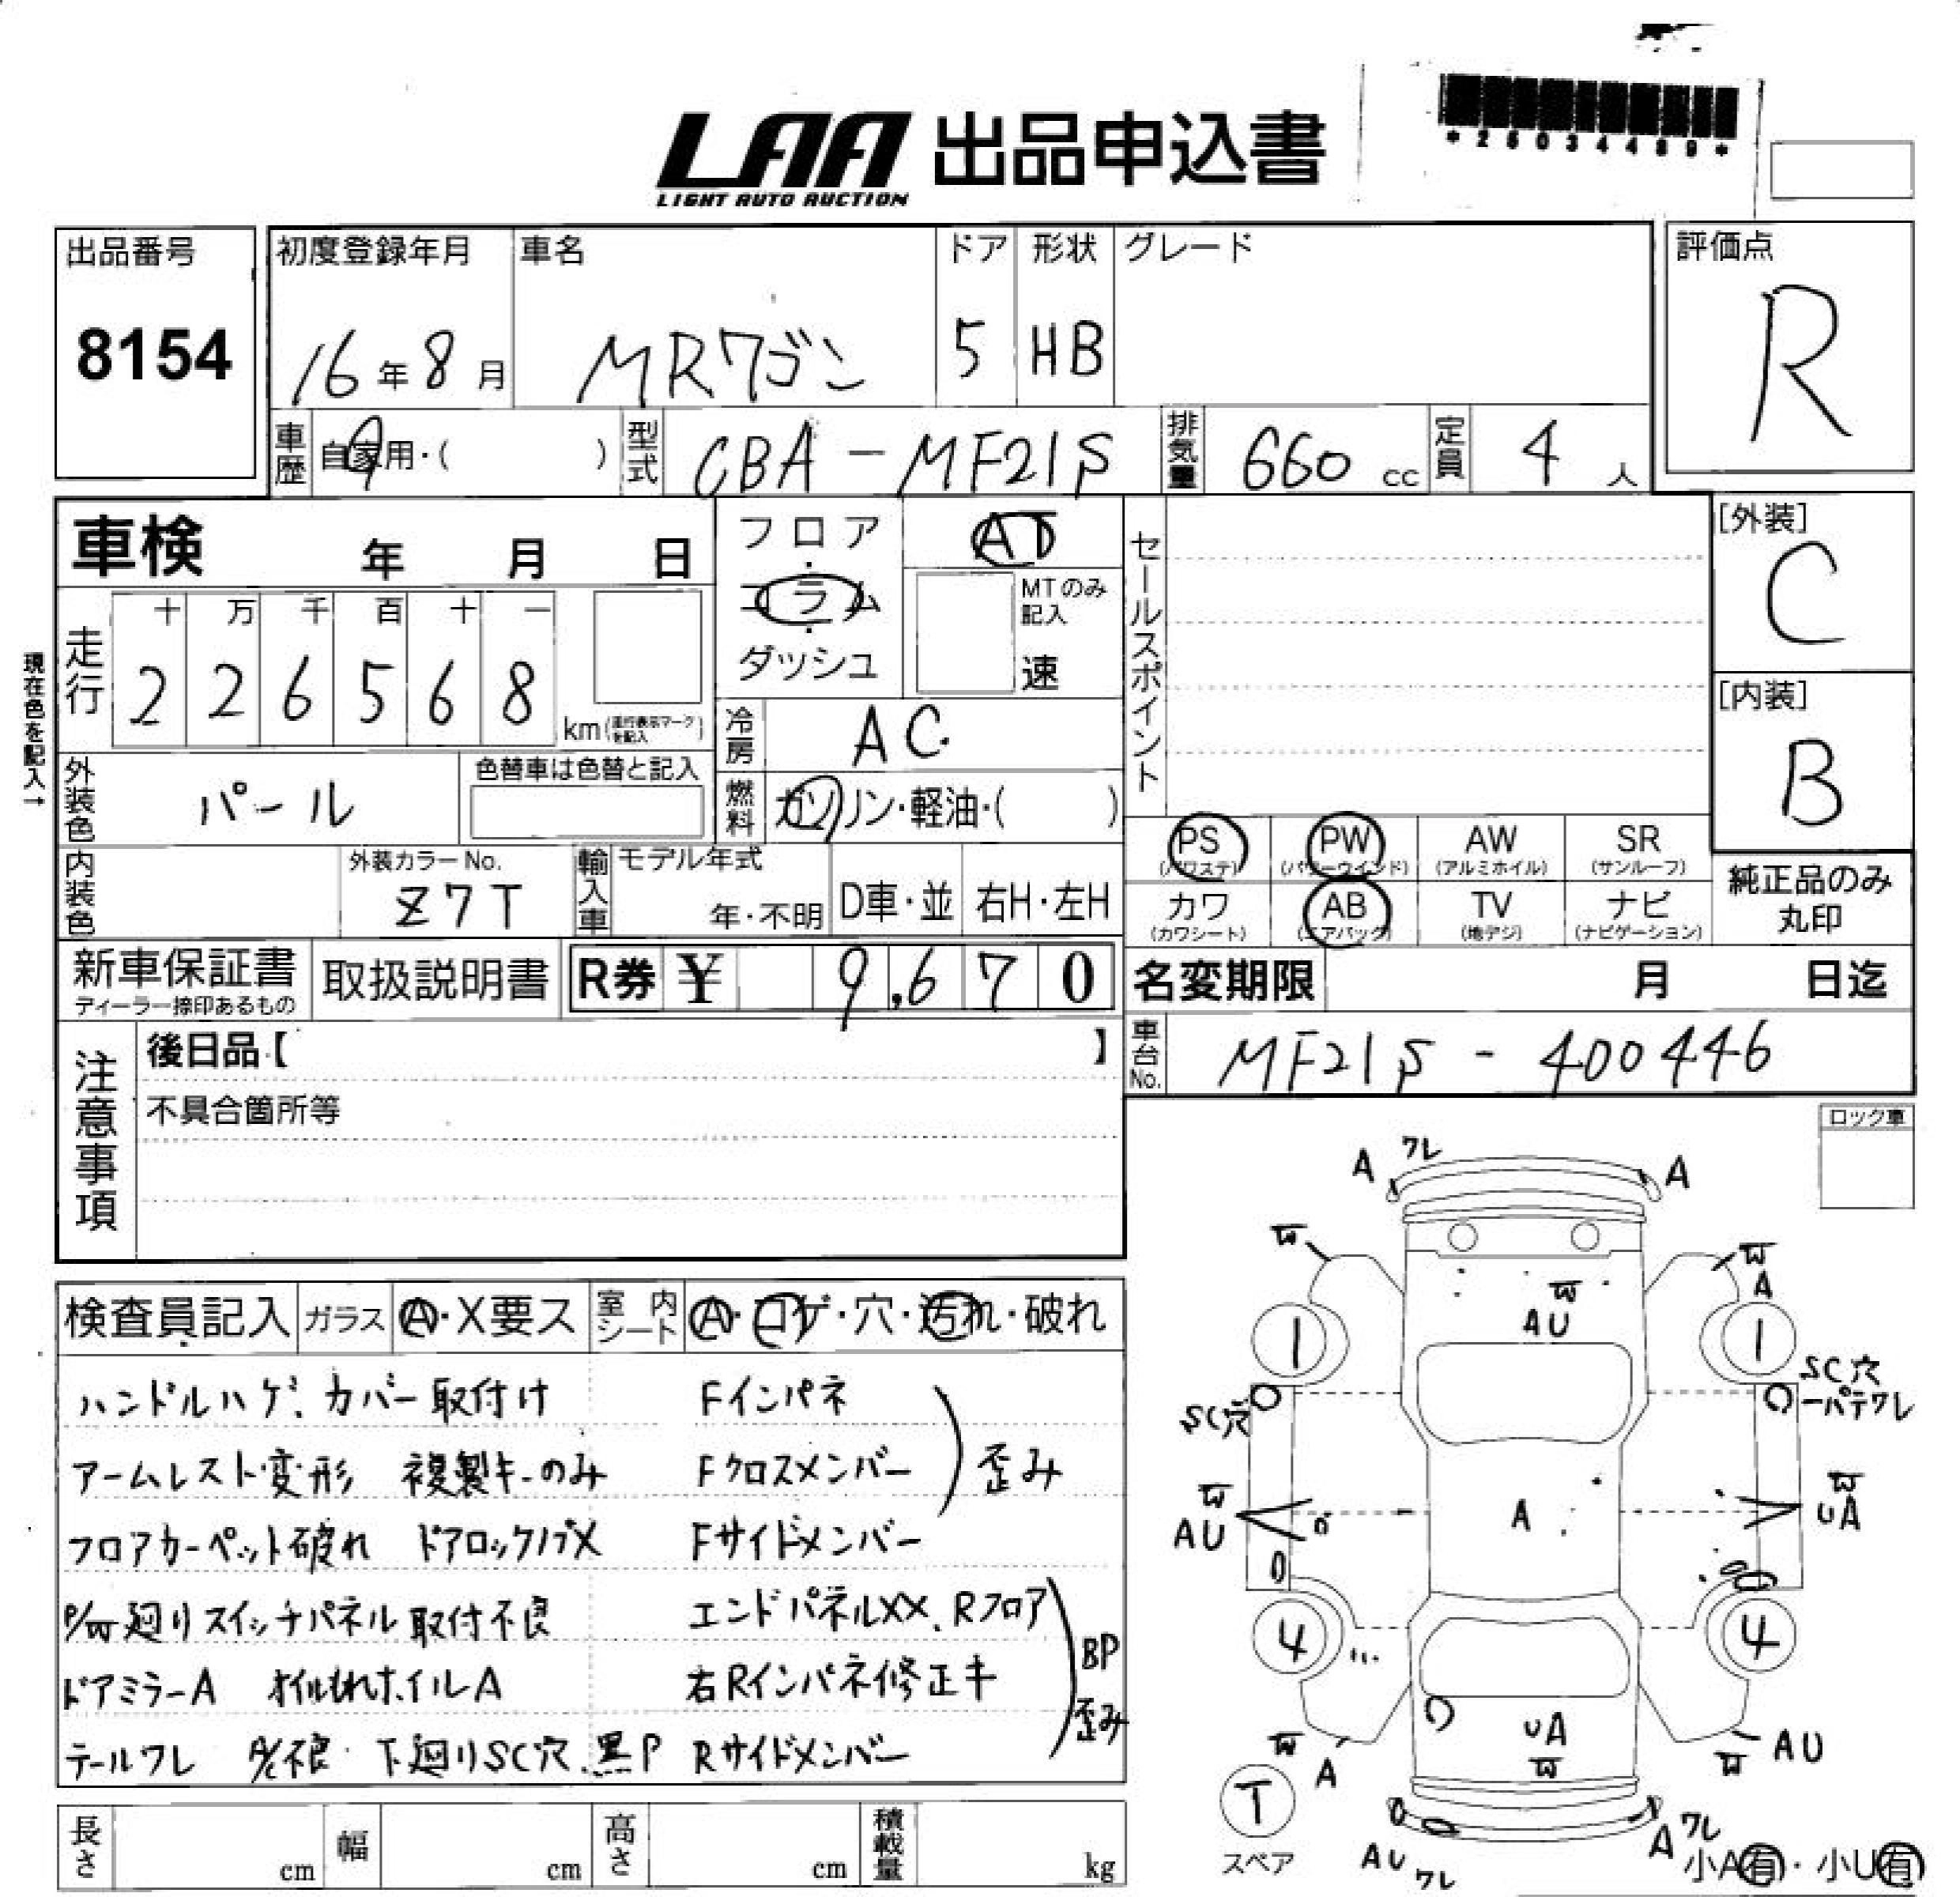 LAA 出品申込書
LIGHT AUTO AUCTION
*25034489*
出品番号 初度登録年月 車名 ドア 形状 グレード 評価点
8154 16年8月 MRワゴン 5 HB R
車歴 自家用・( ) 型式 CBA-MF21S 排気量 660 cc 定員 4 人
車検 年 月 日
フロア・コラム・ダッシュ
AT
MTのみ記入
速
セールスポイント
[外装]
C
[内装]
B
現在色を記入→
走行 十 万 千 百 十 一
2 2 6 5 6 8 km (走行表示マークを記入)
冷房 AC
外装色 パール 色替車は色替と記入
燃料 ガソリン・軽油・( )
PS (パワステ) PW (パワーウインド) AW (アルミホイル) SR (サンルーフ)
カワ (カワシート) AB (エアバッグ) TV (地デジ) ナビ (ナビゲーション)
純正品のみ
丸印
内装色 外装カラーNo. Z7T 輸入車 モデル年式 年・不明 D車・並 右H・左H
新車保証書 取扱説明書 R券 ¥ 9,670
ディーラー捺印あるもの
名変期限 月 日迄
車台No. MF21S-400446
注意事項
後日品【 】
不具合箇所等
ロック車
検査員記入 ガラス A・X要ス 室内シート A・コゲ・穴・汚れ・破れ
ハンドルハゲ、カバー取付け Fインパネ
アームレスト変形 複製キーのみ Fクロスメンバー 歪み
フロアカーペット破れ ドアロックノブX Fサイドメンバー
P/W廻りスイッチパネル取付不良 エンドパネルXX、Rフロア
ドアミラーA オイルもれ ホイルA 右Rインパネ修正キ BP歪み
テールワレ A/C不良 下廻りSC穴、黒P Rサイドメンバー
長さ cm 幅 cm 高さ cm 積載量 kg
A ワレ A
W W
A
W
AU
1 1
SC穴 SC穴
パテワレ
W W
AU A UA
4 4
UA
W
W W AU
A
T
スペア
AU ワレ
A ワレ
小A有・小U有